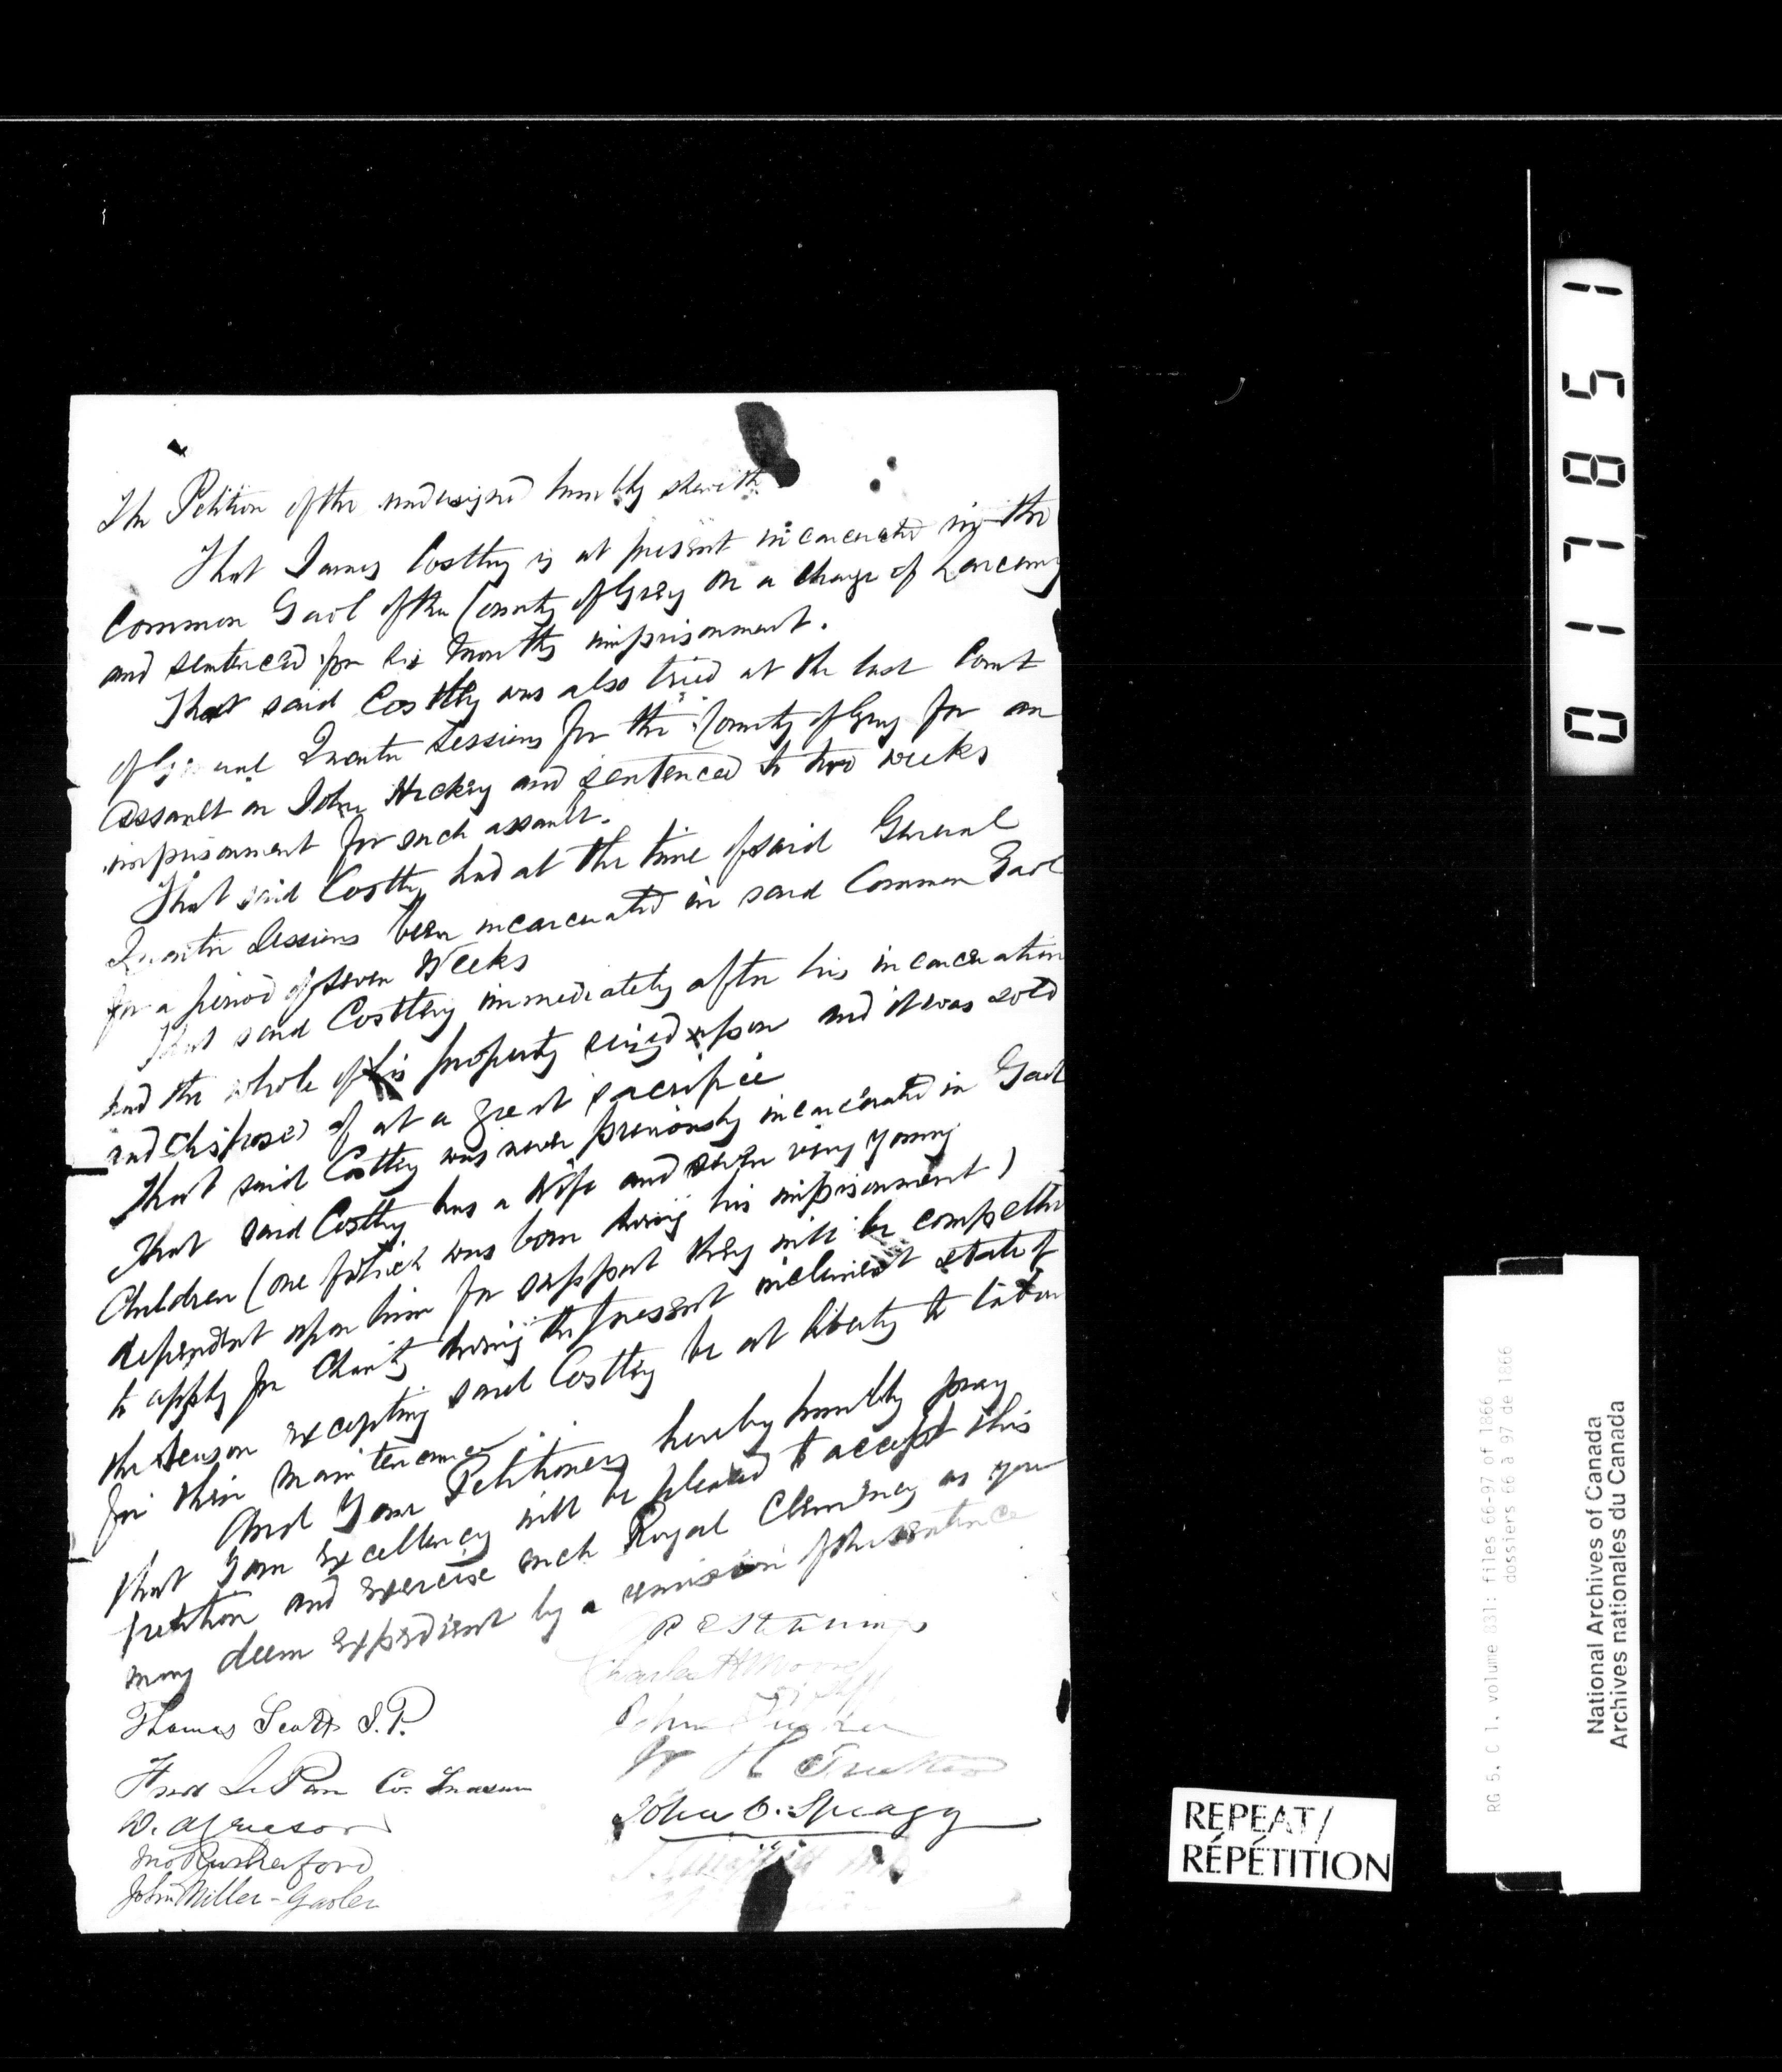 The Petition of the undersigned humbly sheweth
That James Costley is at present incarcerated in the
Common Gaol of the County of Grey on a charge of Larceny
and sentenced for six months imprisonment.
That said Costley was also tried at the last Court
of General Quarter Sessions for the County of Grey for an
assault on John Hickey and sentenced to two weeks
imprisonment for such assault.
That said Costley had at the time of said General
Quarter Sessions been incarcerated in said Common Gaol
for a period of seven Weeks
That said Costley immediately after his incarceration
had the whole of his property seized upon and it was sold
and disposed of at a great sacrifice
That said Costley was never previously incarcerated in Gaol
That said Costley has a Wife and seven very young
Children (one of which was born during his imprisonment)
dependent upon him for support they will be compelled
to apply for Charity during the present inclement state of
the season excepting said Costley be at liberty to labour
for their maintenance.
And Your Petitioners hereby humbly pray
that Your Excellency will be pleased to accept this
petition and exercise such Royal Clemency as you
may deem expedient by a remission of the sentence
Charles H Moore
Thomas Scott J.P.
John
W H
Co. Treasurer
John C. Spragg
Jno Rutherford
John Miller - Gaoler
017851
REPEAT/
RÉPÉTITION
RG 5, C 1, volume 831: files 66-97 of 1866
dossiers 66 à 97 de 1866
National Archives of Canada
Archives nationales du Canada